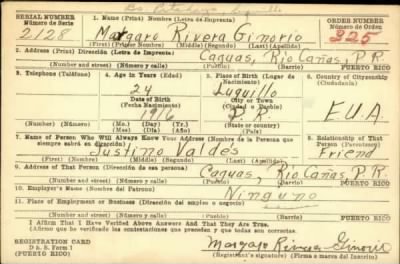 SERIAL NUMBER
Número de Serie
2128
1. Name (Print) Nombre (Letra de Imprenta)
Margaro Rivera Gimorio
(First) (Primer Nombre) (Middle) (Segundo) (Last) (Apellido)
ORDER NUMBER
Número de Orden
325
2. Address (Print) Dirección (Letra de Imprenta)
Caguas, Rio Cañas, P.R.
(Pueblo) (Barrio) PUERTO RICO
3. Telephone (Teléfono)
4. Age in Years (Edad)
24
Date of Birth
(Fecha Nacimiento)
1916
(Mo.) (Day) (Yr.)
(Mes) (Día) (Año)
5. Place of Birth (Lugar de Nacimiento)
Luquillo
City or Town
(Ciudad o Pueblo)
P.R.
(State or country)
(País)
6. Country of Citizenship
(Ciudadanía)
E.U.A.
7. Name of Person Who Will Always Know Your Address (Nombre de la Persona que siempre sabrá su dirección)
Justino Valdés
(First) (Nombre) (Middle) (Segundo) (Last) (Apellido)
8. Relationship of That Person (Parentesco)
Friend
9. Address of That Person (Dirección de esa persona)
Caguas, Rio Cañas, P.R.
(Pueblo) (Barrio) PUERTO RICO
10. Employer's Name (Nombre del Patrono)
Ninguno
11. Place of Employment or Business (Dirección del empleo o negocio)
(Pueblo) (Barrio) PUERTO RICO
I Affirm That I Have Verified Above Answers And That They Are True.
(Afirmo que he verificado las contestaciones que preceden y que todas son correctas.
REGISTRATION CARD
D. S. S. Form 1
(PUERTO RICO)
Margaro Rivera Gimorio
(Registrant's signature) (Firma o marca del Inscrito)